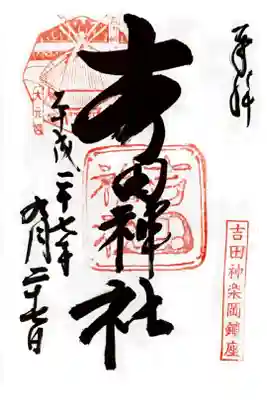 奉拝
吉田神社
平成二十七年
九月二十七日
大元宮
吉田神社
吉田神楽岡鎮座